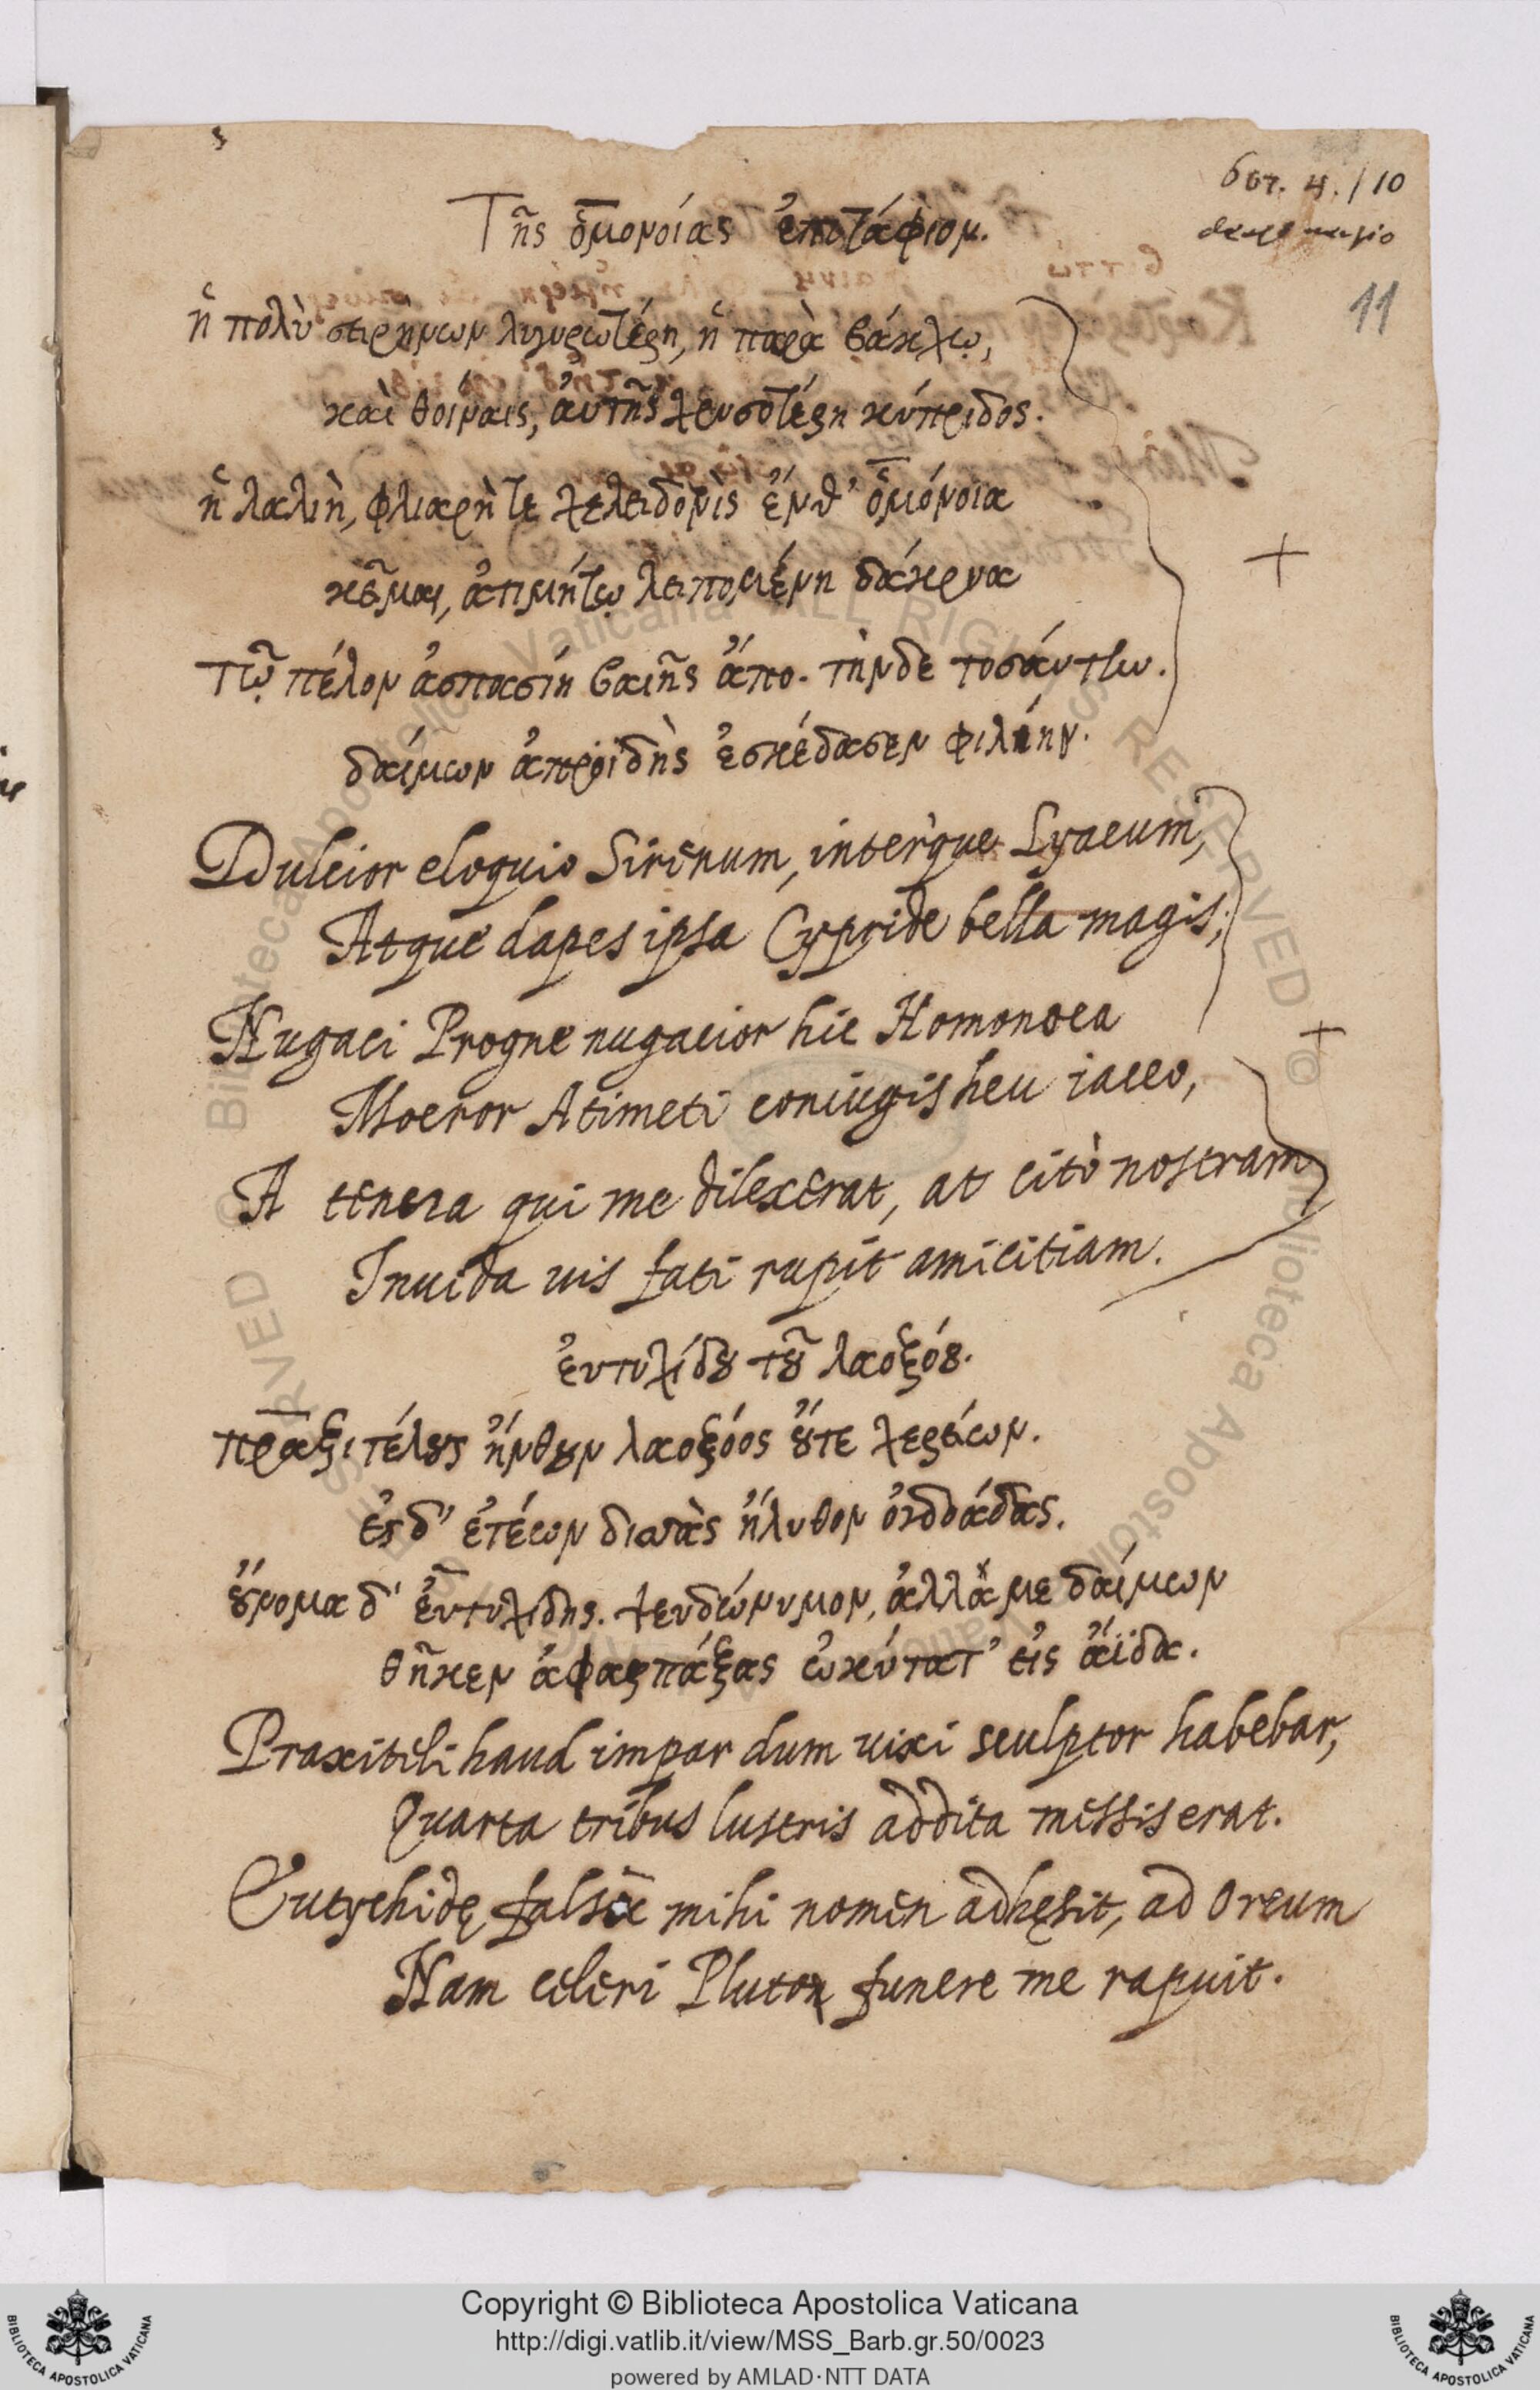 Τῆς ὁμονοίας ἐπιτάφιον.
ἣ πολὺ σειρήνων λιγυρωτέρη, ἣ παρὰ βάκχῳ,
καὶ θοίναις, ἀυτῆς χρυσοτέρη κύπριδος.
ἣ λαλιὴ, φλιαρὴ τε χελειδονὶς ἔνθ' ὁμόνοια
κεῖμαι, ἀτιμήτῳ λειπομένη δάκρυα
τῷ πέλον ἀσπασίη βαιῆς ἄπο. τὴνδε τοσάυτην.
δαίμων ἀπροϊδὴς ἐσκέδασεν φιλίην.
Dulcior eloquio Sirenum, interque Lyaeum,
Atque dapes ipsa Cypride bella magis;
Nugaci Progne nugacior hic Homonoea
Moeror Atimeti coniugis heu iaceo,
A tenera qui me dilexerat, at citò nostram
Inuida uis fati rupit amicitiam.
ἐυτυχίδου τοῦ λαοξόου.
πραξιτέλους ἤνθουν λαοξόος οὔτε χερείων.
ἐς δ' ἐτέων δισσὰς ἤλυθον ὀγδοάδας.
οὔνομα δ' ἐυτυχίδης. ψευδώνυμον, ἀλλὰ με δαίμων
θῆκεν ἀφαρπάξας ὠκύτατ' εἰς ἄϊδα.
Praxiteli haud impar dum uixi sculptor habebar,
Quarta tribus lustris addita messis erat.
Eutychidę, false mihi nomen adhęsit, ad Orcum
Nam celeri Pluton funere me rapuit.
10
11
Copyright © Biblioteca Apostolica Vaticana
http://digi.vatlib.it/view/MSS_Barb.gr.50/0023
powered by AMLAD·NTT DATA
BIBLIOTECA APOSTOLICA VATICANA
BIBLIOTECA APOSTOLICA VATICANA